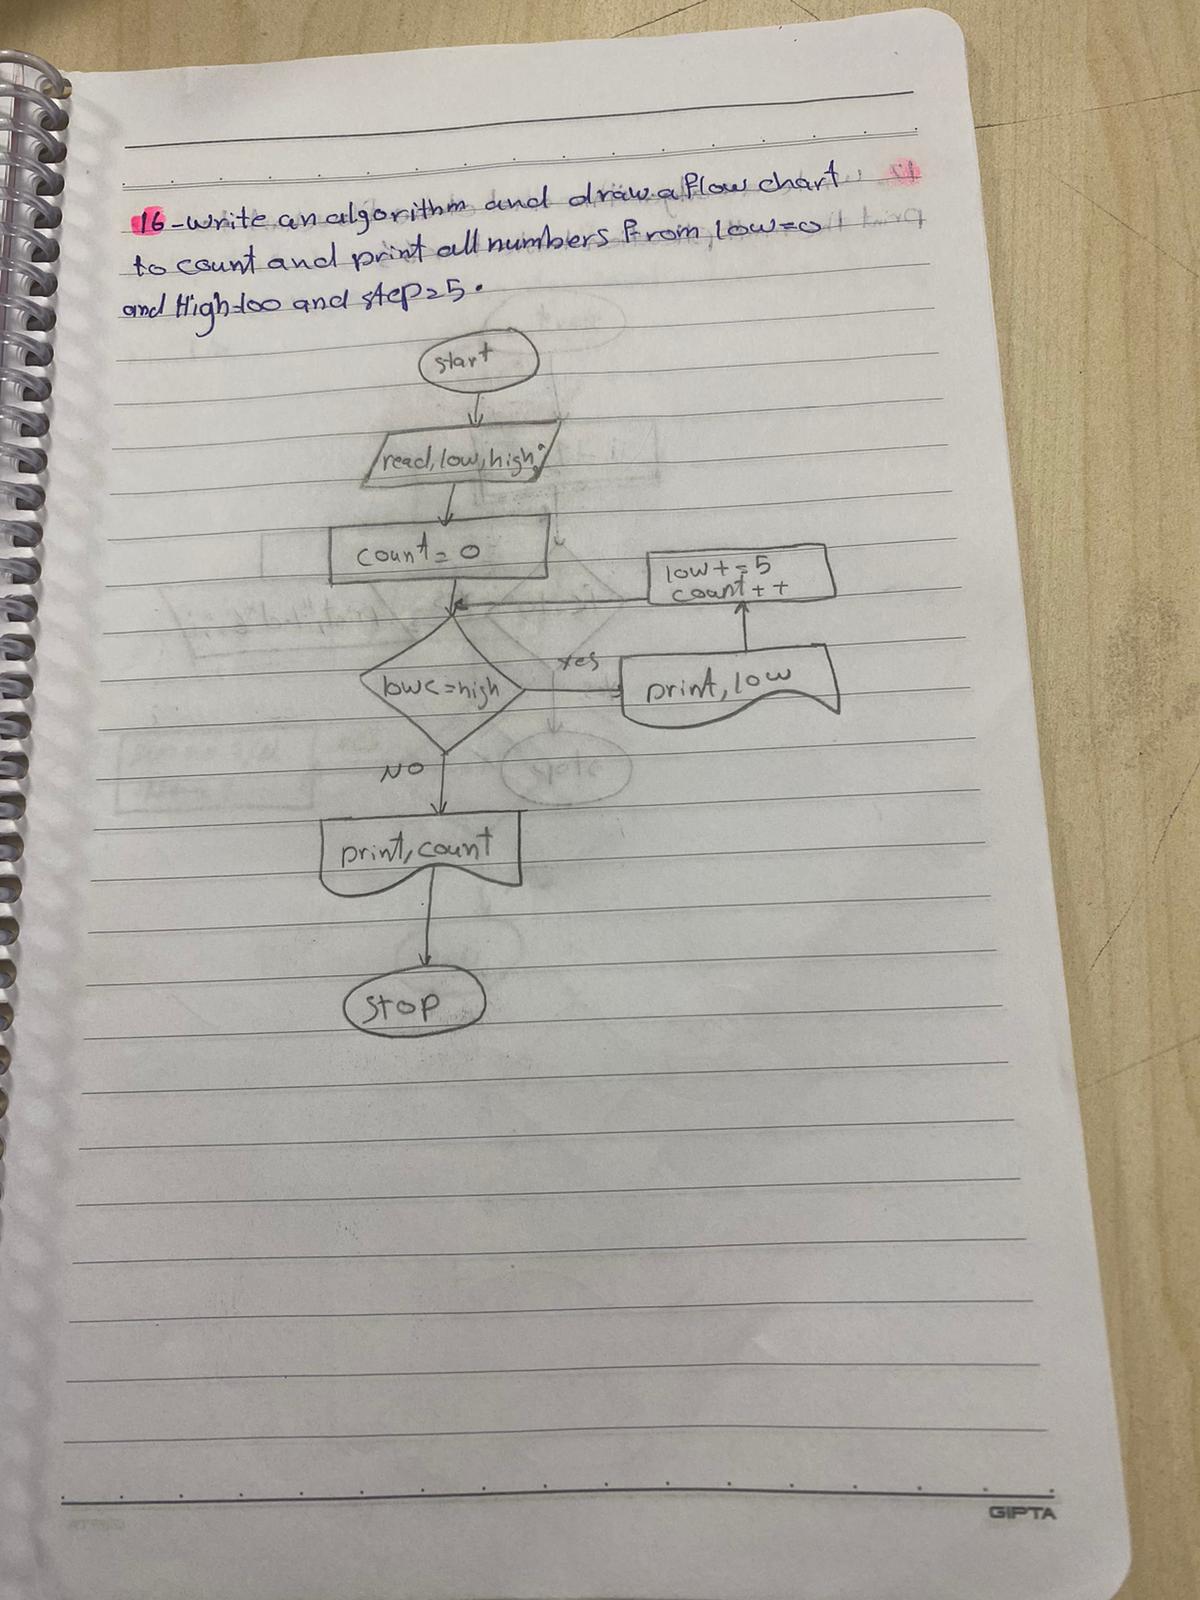 16-write an algorithm and draw a flow chart
to count and print all numbers from low=0
and High=100 and step=5.
start
read,low,high;
count=0
low+=5
count++
low<=high
Yes
print,low
NO
print,count
stop
GIPTA